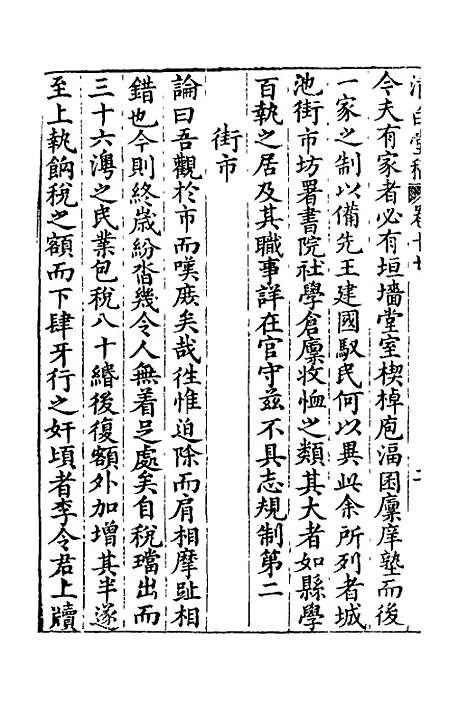 清白堂稿 卷十七
今夫有家者必有垣墻堂室楔棹庖湢囷廩庠塾而後
一家之制以備先王建國馭民何以異此余所列者城
池街市坊署書院社學倉廪收恤之類其大者如縣學
百執之居及其職事詳在官守玆不具志規制第二
街市
論曰吾觀於市而嘆庻矣哉徃惟迫除而肩相摩趾相
錯也今則終歳紛沓幾令人無着足處矣自稅璫出而
三十六灣之民業包稅八十緡後復額外加增其半遂
至上執餉稅之額而下肆牙行之奸頃者李令君上牘